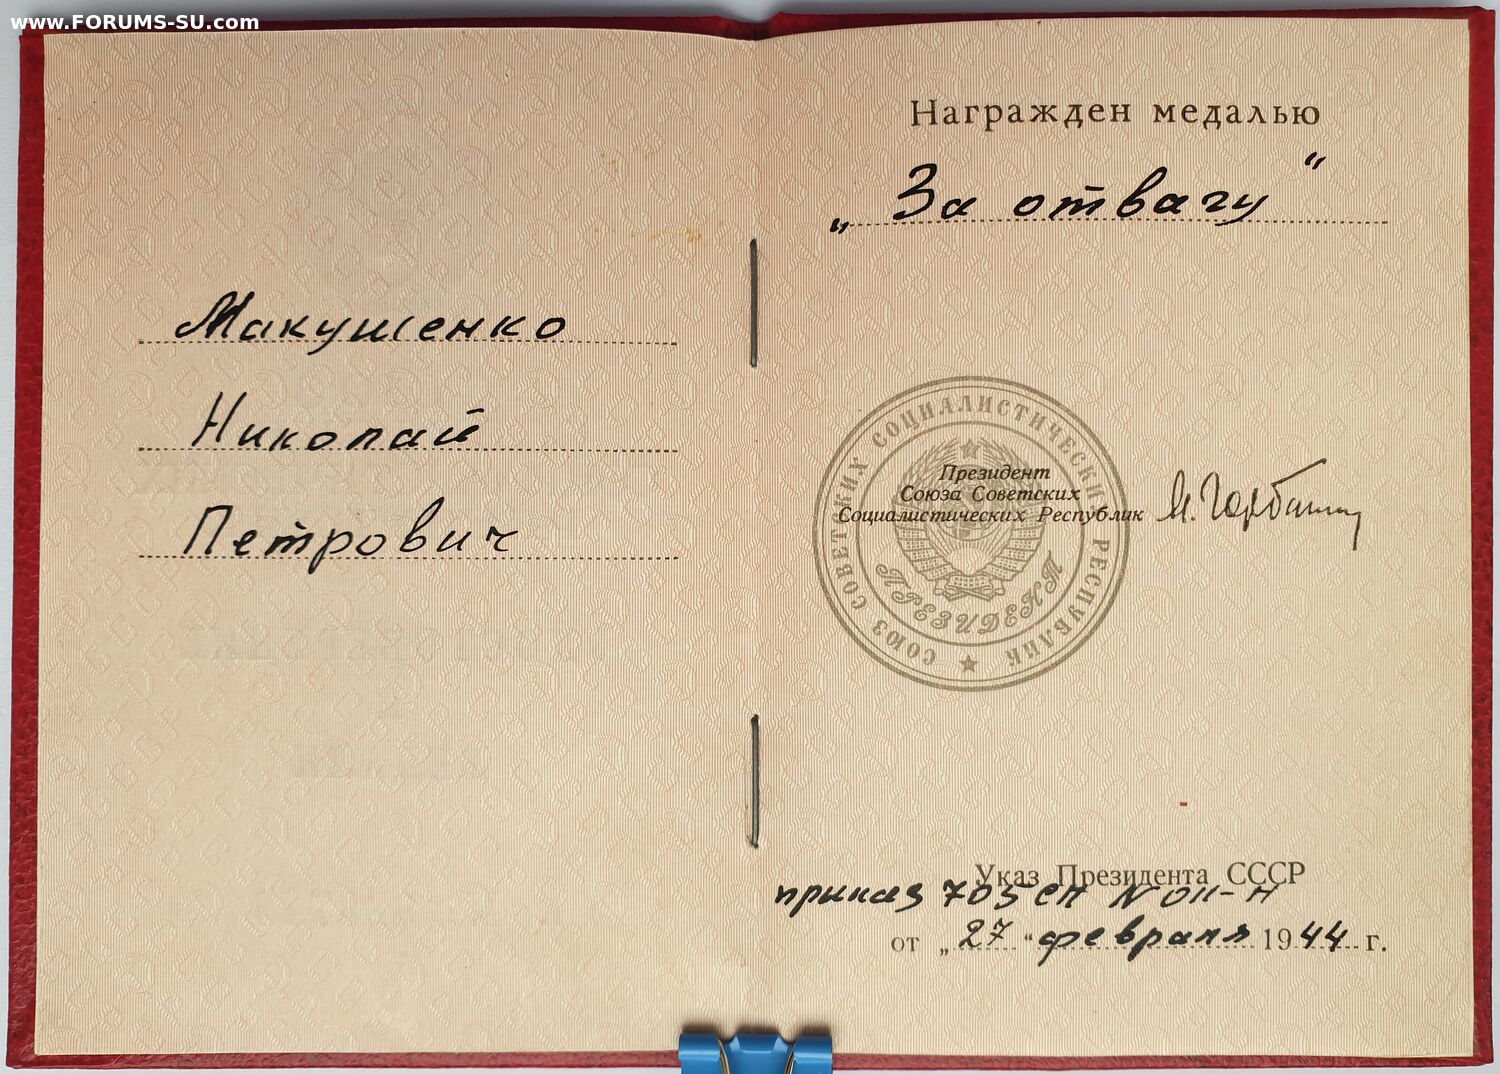 www.FORUMS-SU.com
Макушенко
Николай
Петрович
Награжден медалью
„За отвагу“
СОЮЗ СОВЕТСКИХ СОЦИАЛИСТИЧЕСКИХ РЕСПУБЛИК
ПРЕЗИДЕНТ
Президент
Союза Советских
Социалистических Республик
М. Горбачев
Указ Президента СССР
приказ 705 сп № 011-н
от „27“ февраля 1944 г.